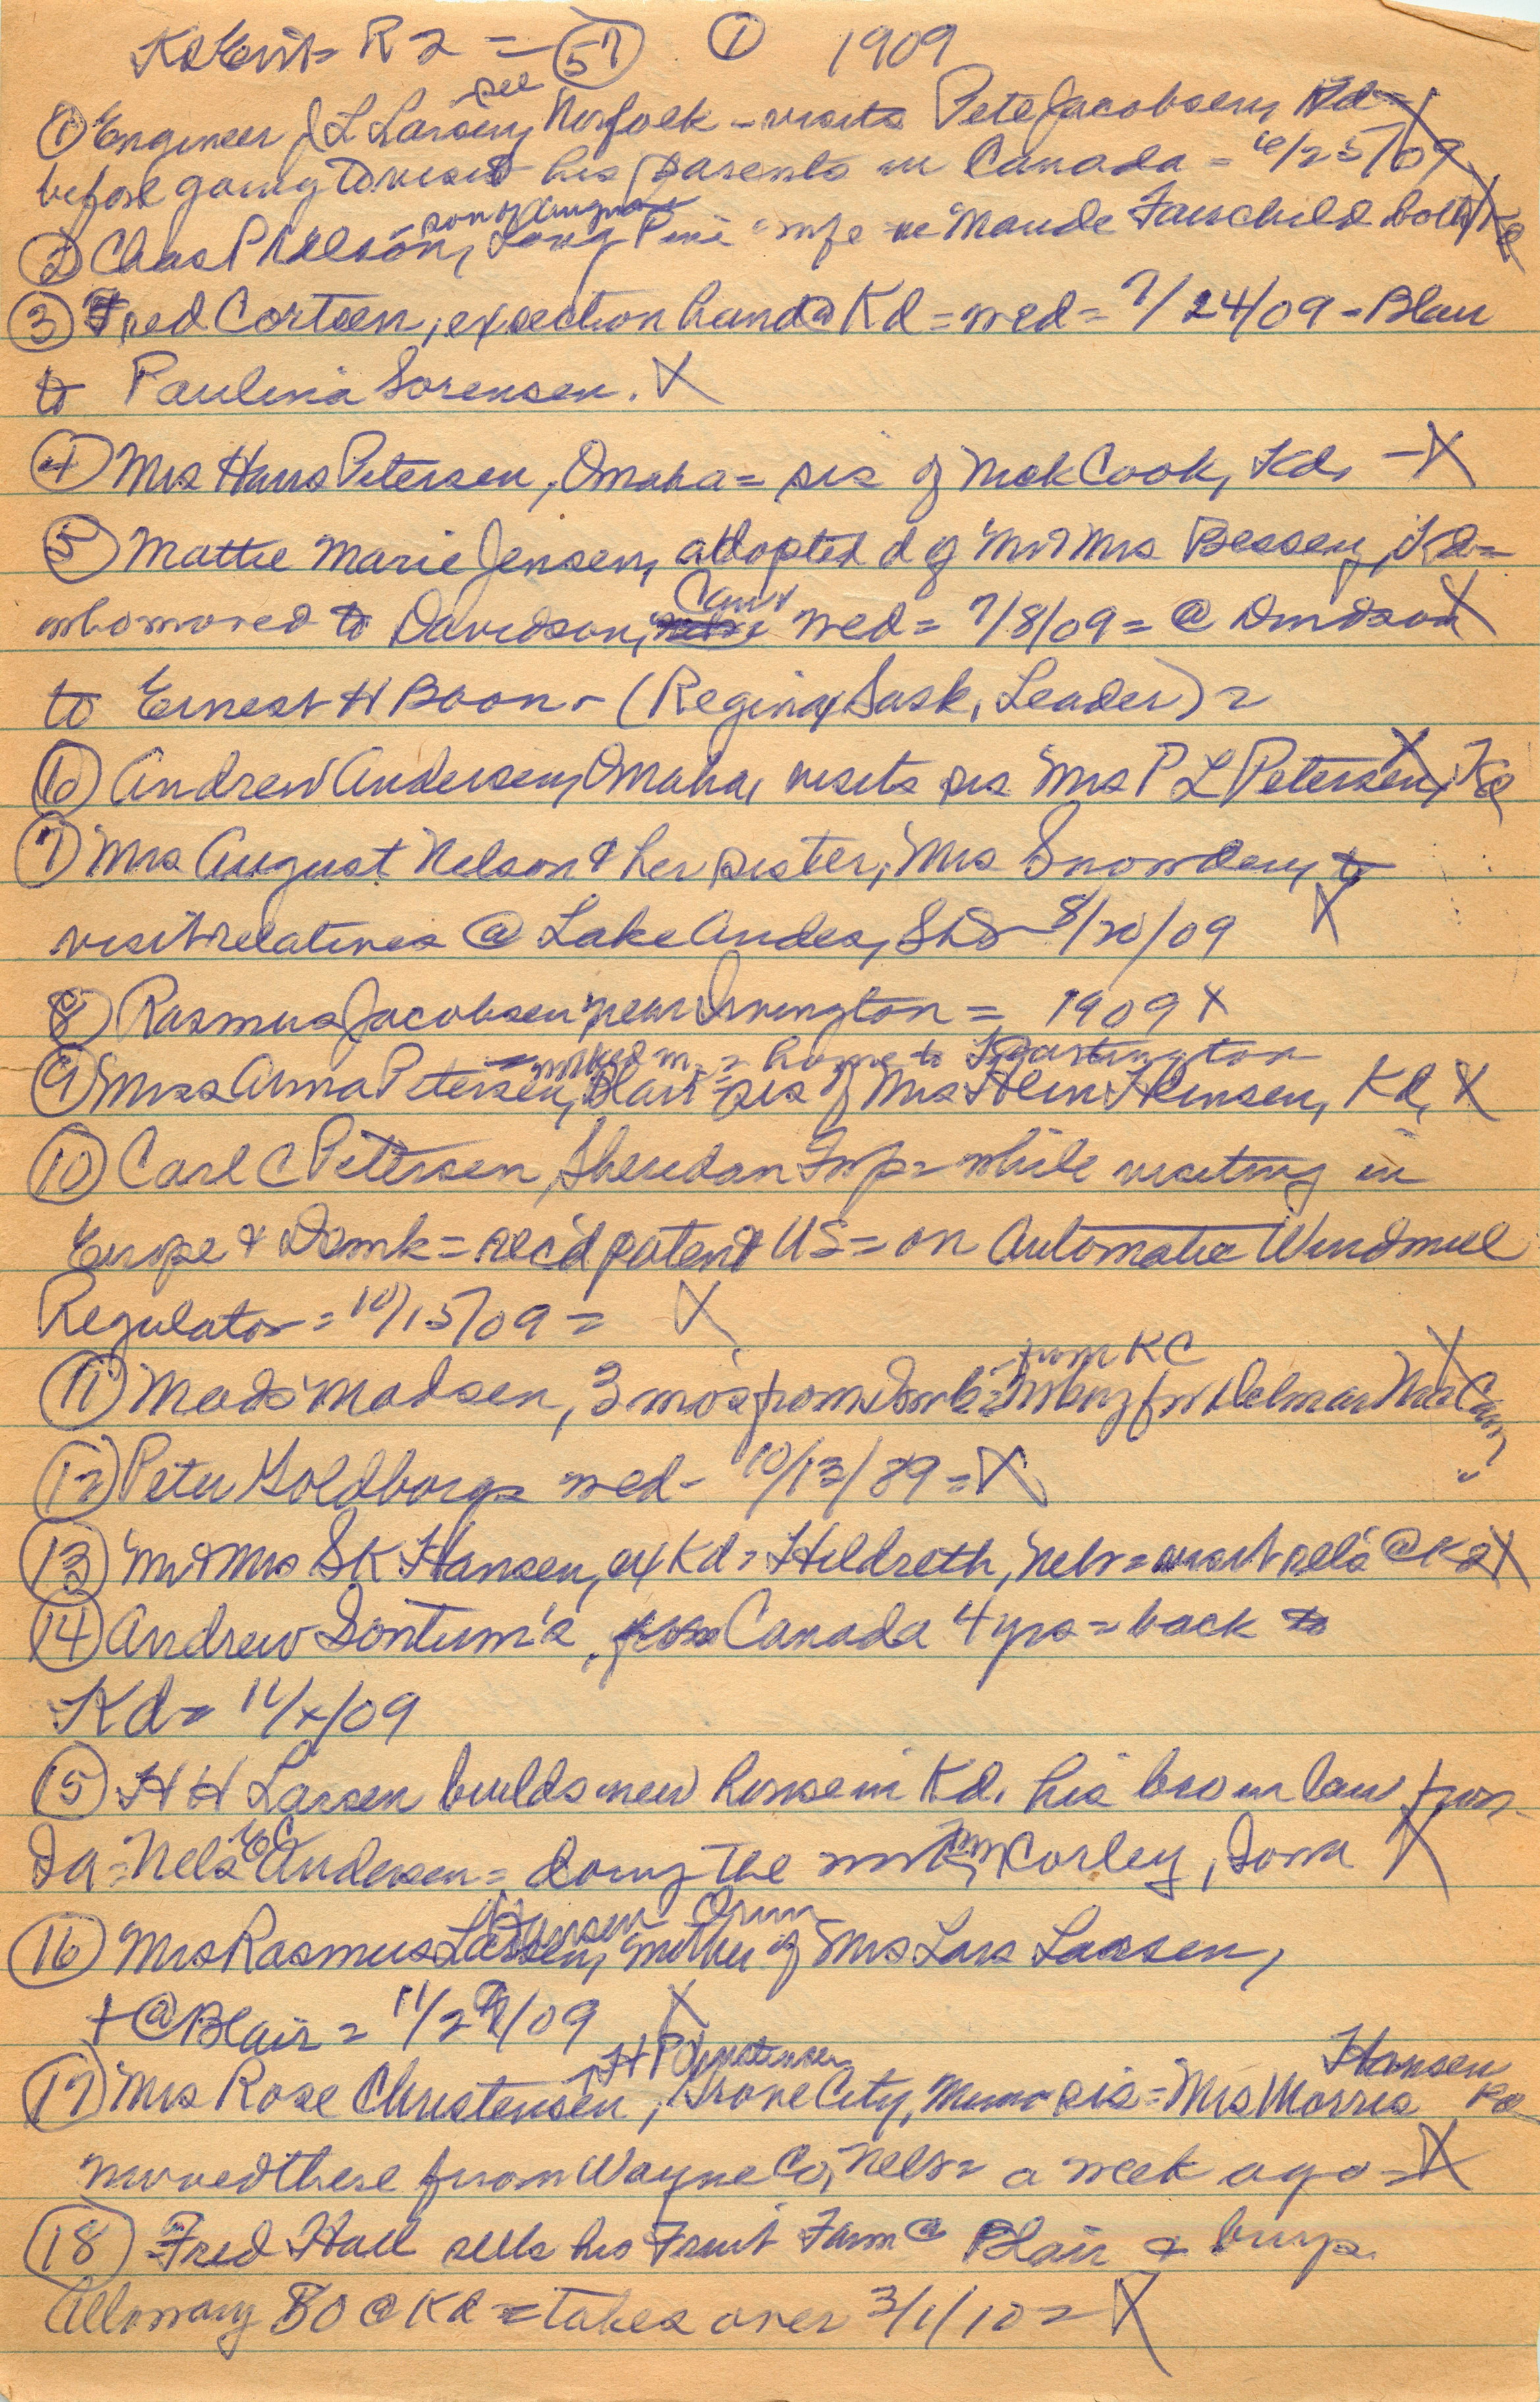 Kd Ent= R 2 = 57 1 1909
see
1 Engineer J L Larsen, Norfolk - visits Pete Jacobsen, Kd= X
before going to visit his parents in Canada = 6/25/09
son of August
2 Chas P Nelson, Long Pine & wife = ne Maude Fairchild both Kd X
3 Fred Corteen, ex section hand @ Kd = wed = 7/24/09 - Blair
to Paulina Sorensen. X
4 Mrs Hans Petersen, Omaha = sis of Nick Cook, Kd, - X
5 Mattie Marie Jensen, adopted d of Mr & Mrs Bessey, Kd =
Can
who moved to Davidson, wed = 7/8/09 = @ Davidson X
to Ernest H Boon - (Regina, Sask, Leader) =
6 Andrew Andersen, Omaha, visits sis Mrs P L Petersen, Kd X
7 Mrs August Nelson & her sister, Mrs Snowden, to
visit relatives @ Lake Andes, S D - 8/20/09 X
8 Rasmus Jacobsen near Irvington = 1909 X
home to
9 Miss Anna Petersen, Blair = sis of Mrs Hensen, Kd, X
10 Carl C Petersen, Sheridan Twp = while visiting in
Europe & Denmk = rec'd patent US = on Automatic Windmill
Regulator = 10/15/09 = X
from KC
11 Mads Madsen, 3 mos from Denmk = Delmar X
12 Peter Goldborgs wed - 10/13/89 = X
13 Mr & Mrs S K Hansen, ex Kd = Hildreth, Nebr = visit rels @ Kd X
14 Andrew Sontum's, Canada 4 yrs = back to
Kd = 11/x/09
15 H H Larsen builds new house in Kd, his bro in law from
Ia = Nels Andersen = doing the work, from Corley, Iowa X
Hansen Orum
16 Mrs Rasmus Larsen, mother of Mrs Lars Larsen,
+ @ Blair = 11/29/09 X
H P Christensen Hansen
17 Mrs Rose Christensen, Grove City, Minn = sis = Mrs Morris Kd
moved there from Wayne Co, Nebr = a week ago = X
18 Fred Hall sells his Fruit Farm @ Blair & buys
80 @ Kd = takes over 3/1/10 = X